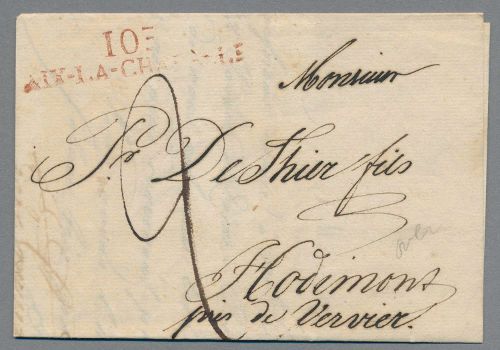 103
AIX-LA-CHAPELLE
Monsieur
De Thier fils
Hodimont
près de Vervier.